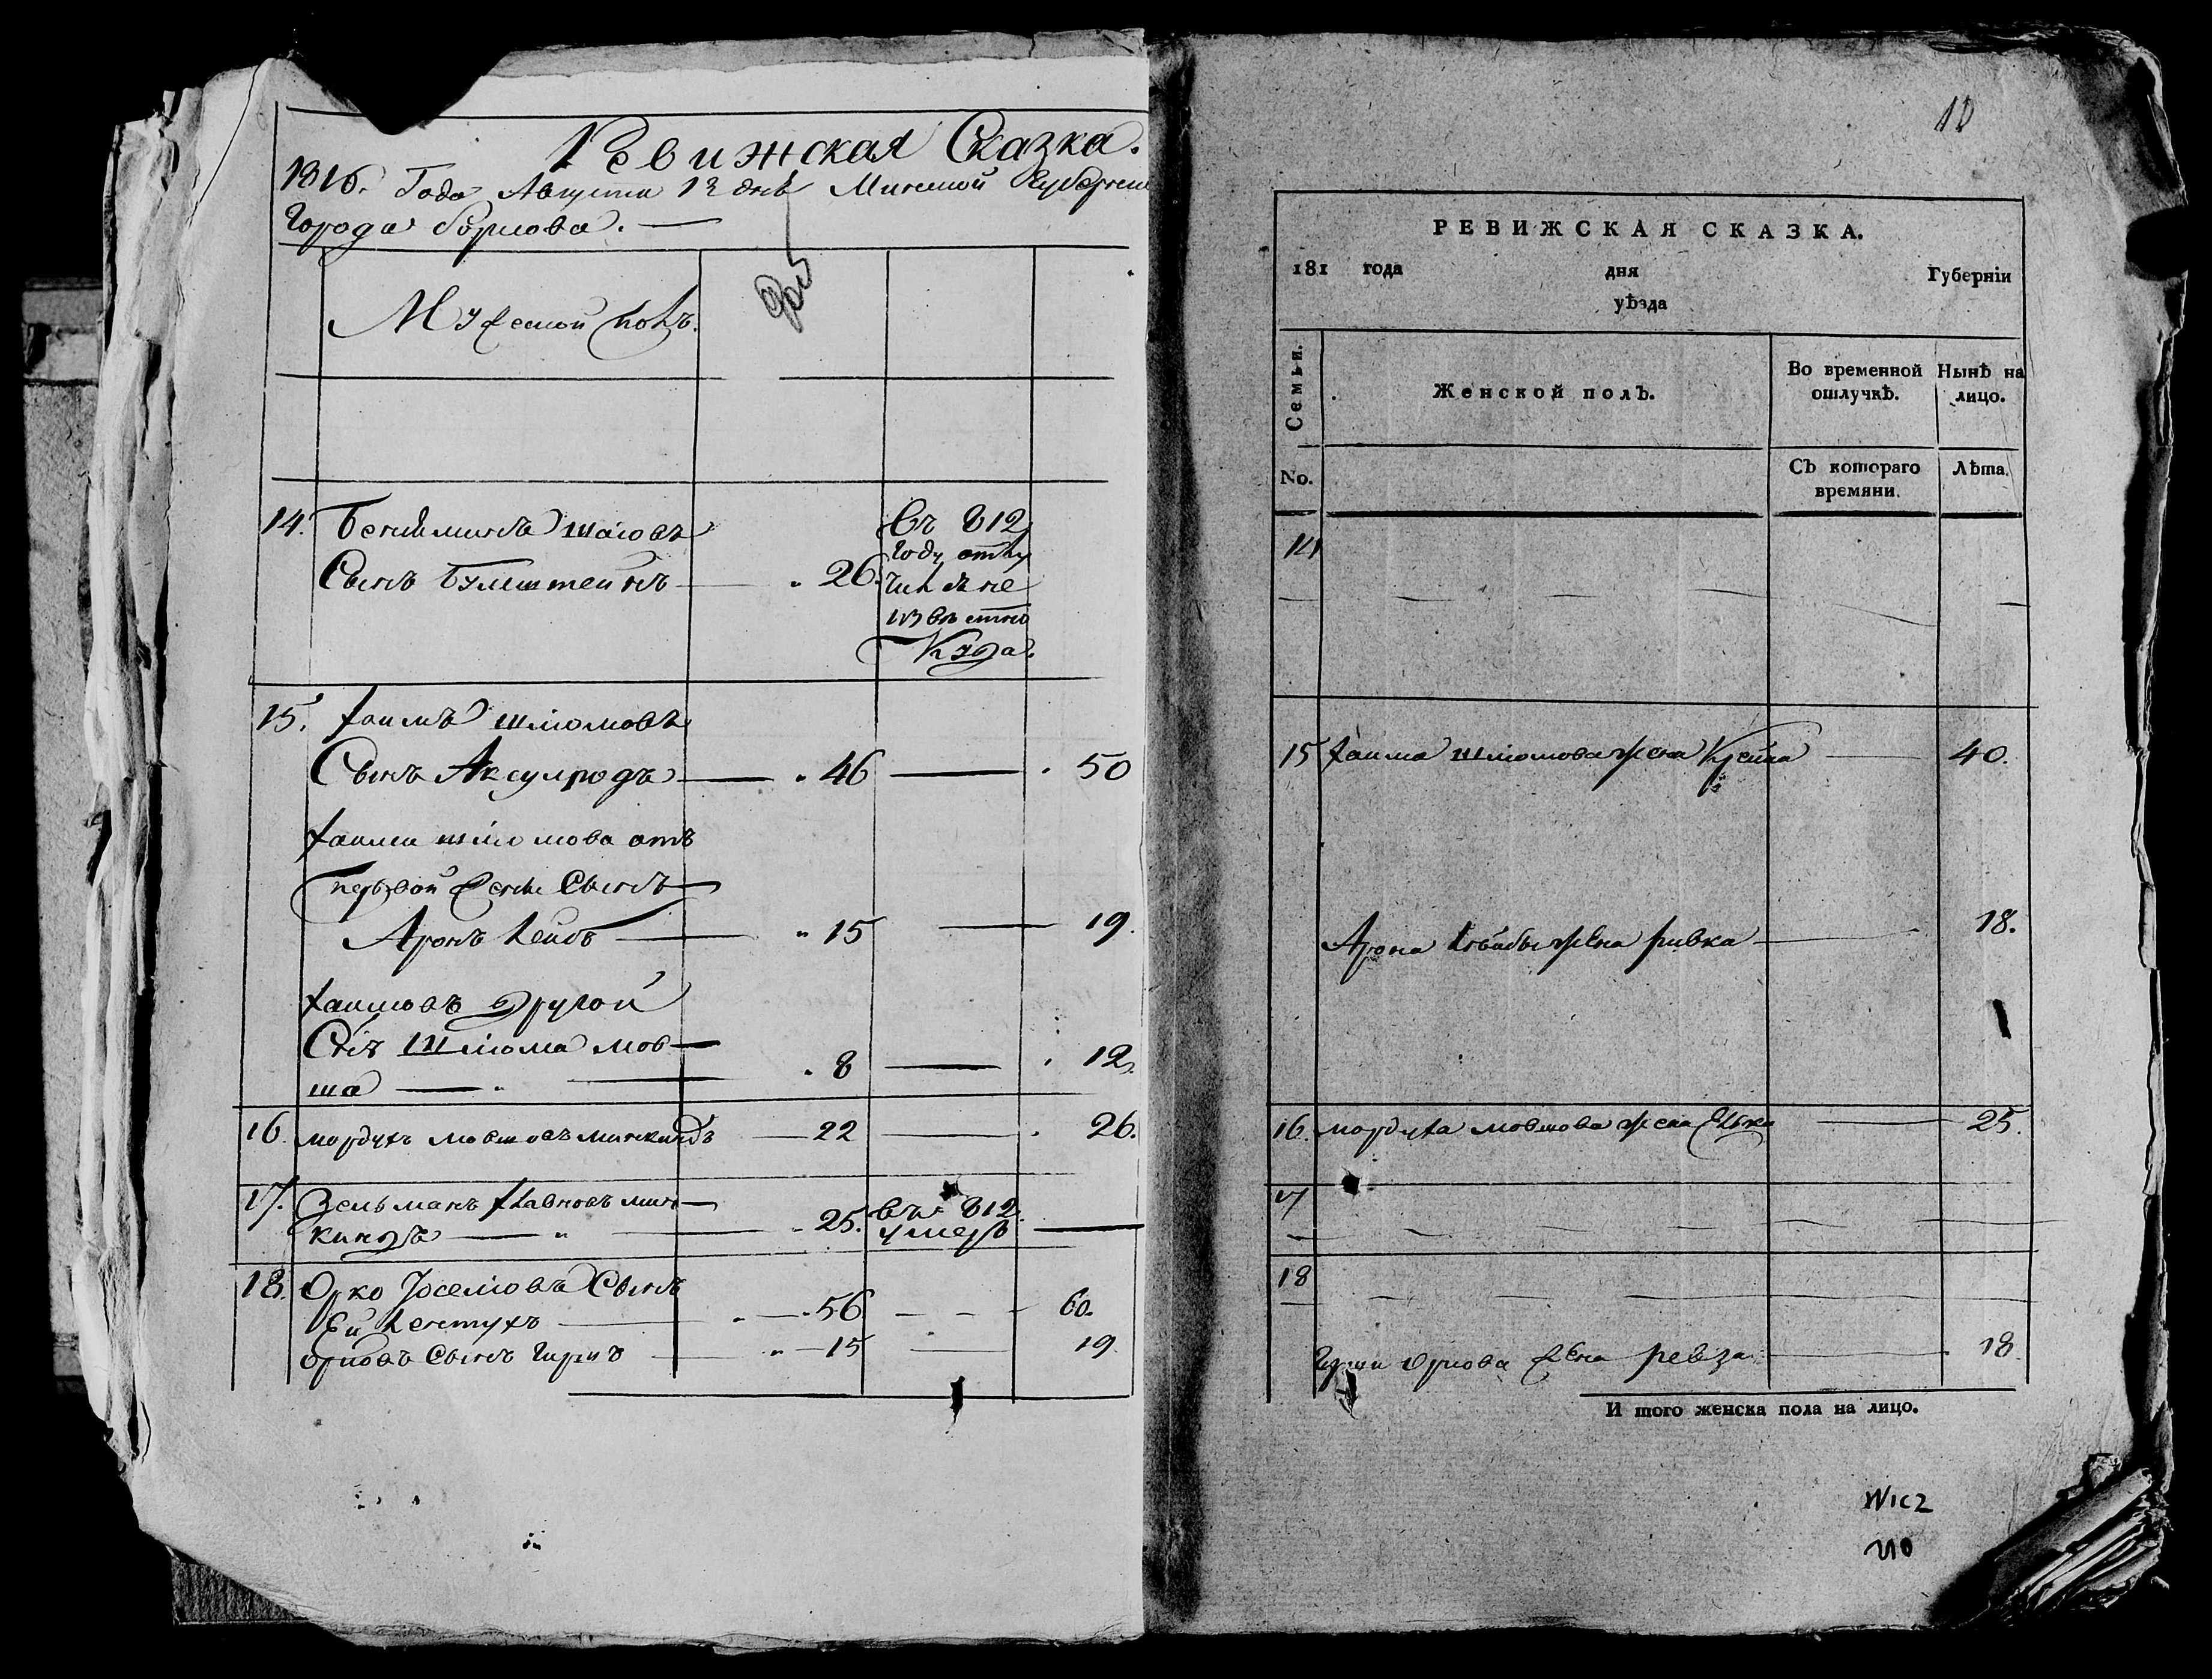 Ревижская Сказка.
1816. Года Августа 12 дня Минской Губернии
Города Борисова. —
Мужеской полъ.
14. Бениаминъ Шаіовъ
Сынъ Бумштейнъ — 26.
Въ 812
Году отлу
чился не
извѣстно
Куда.
15. Хаимъ Шліомовъ
Сынъ Аксулродъ — 46 — 50
Хаима Шліомова отъ
первой жены Сынъ
Аронъ Лейбъ — 15 — 19.
Хаимовъ другой
Сынъ Шліома Мов-
ша — 8 — 12.
16. Мордухъ Мовшовъ Минкиндъ — 22 — 26.
17. Зельманъ Хлавновъ Мин-
киндъ — 25. Въ 812. умеръ —
18. Орко Іоселіовъ Сынъ
— 56 — 60.
Оріовъ Сынъ — 15 — 19.
10
РЕВИЖСКАЯ СКАЗКА.
181 года дня Губерніи
уѣзда
Семьи.
Женской полъ.
Во временной отлучкѣ.
Нынѣ на лицо.
No.
Съ котораго времяни.
Лѣта.
14
15 Хаима Шліомова жена Крейна — 40.
Арона Лейбы жена Ривка — 18.
16. Мордуха Мовшова жена — 25.
17
18
Оріова жена Ревза — 18.
И того женска пола на лицо.